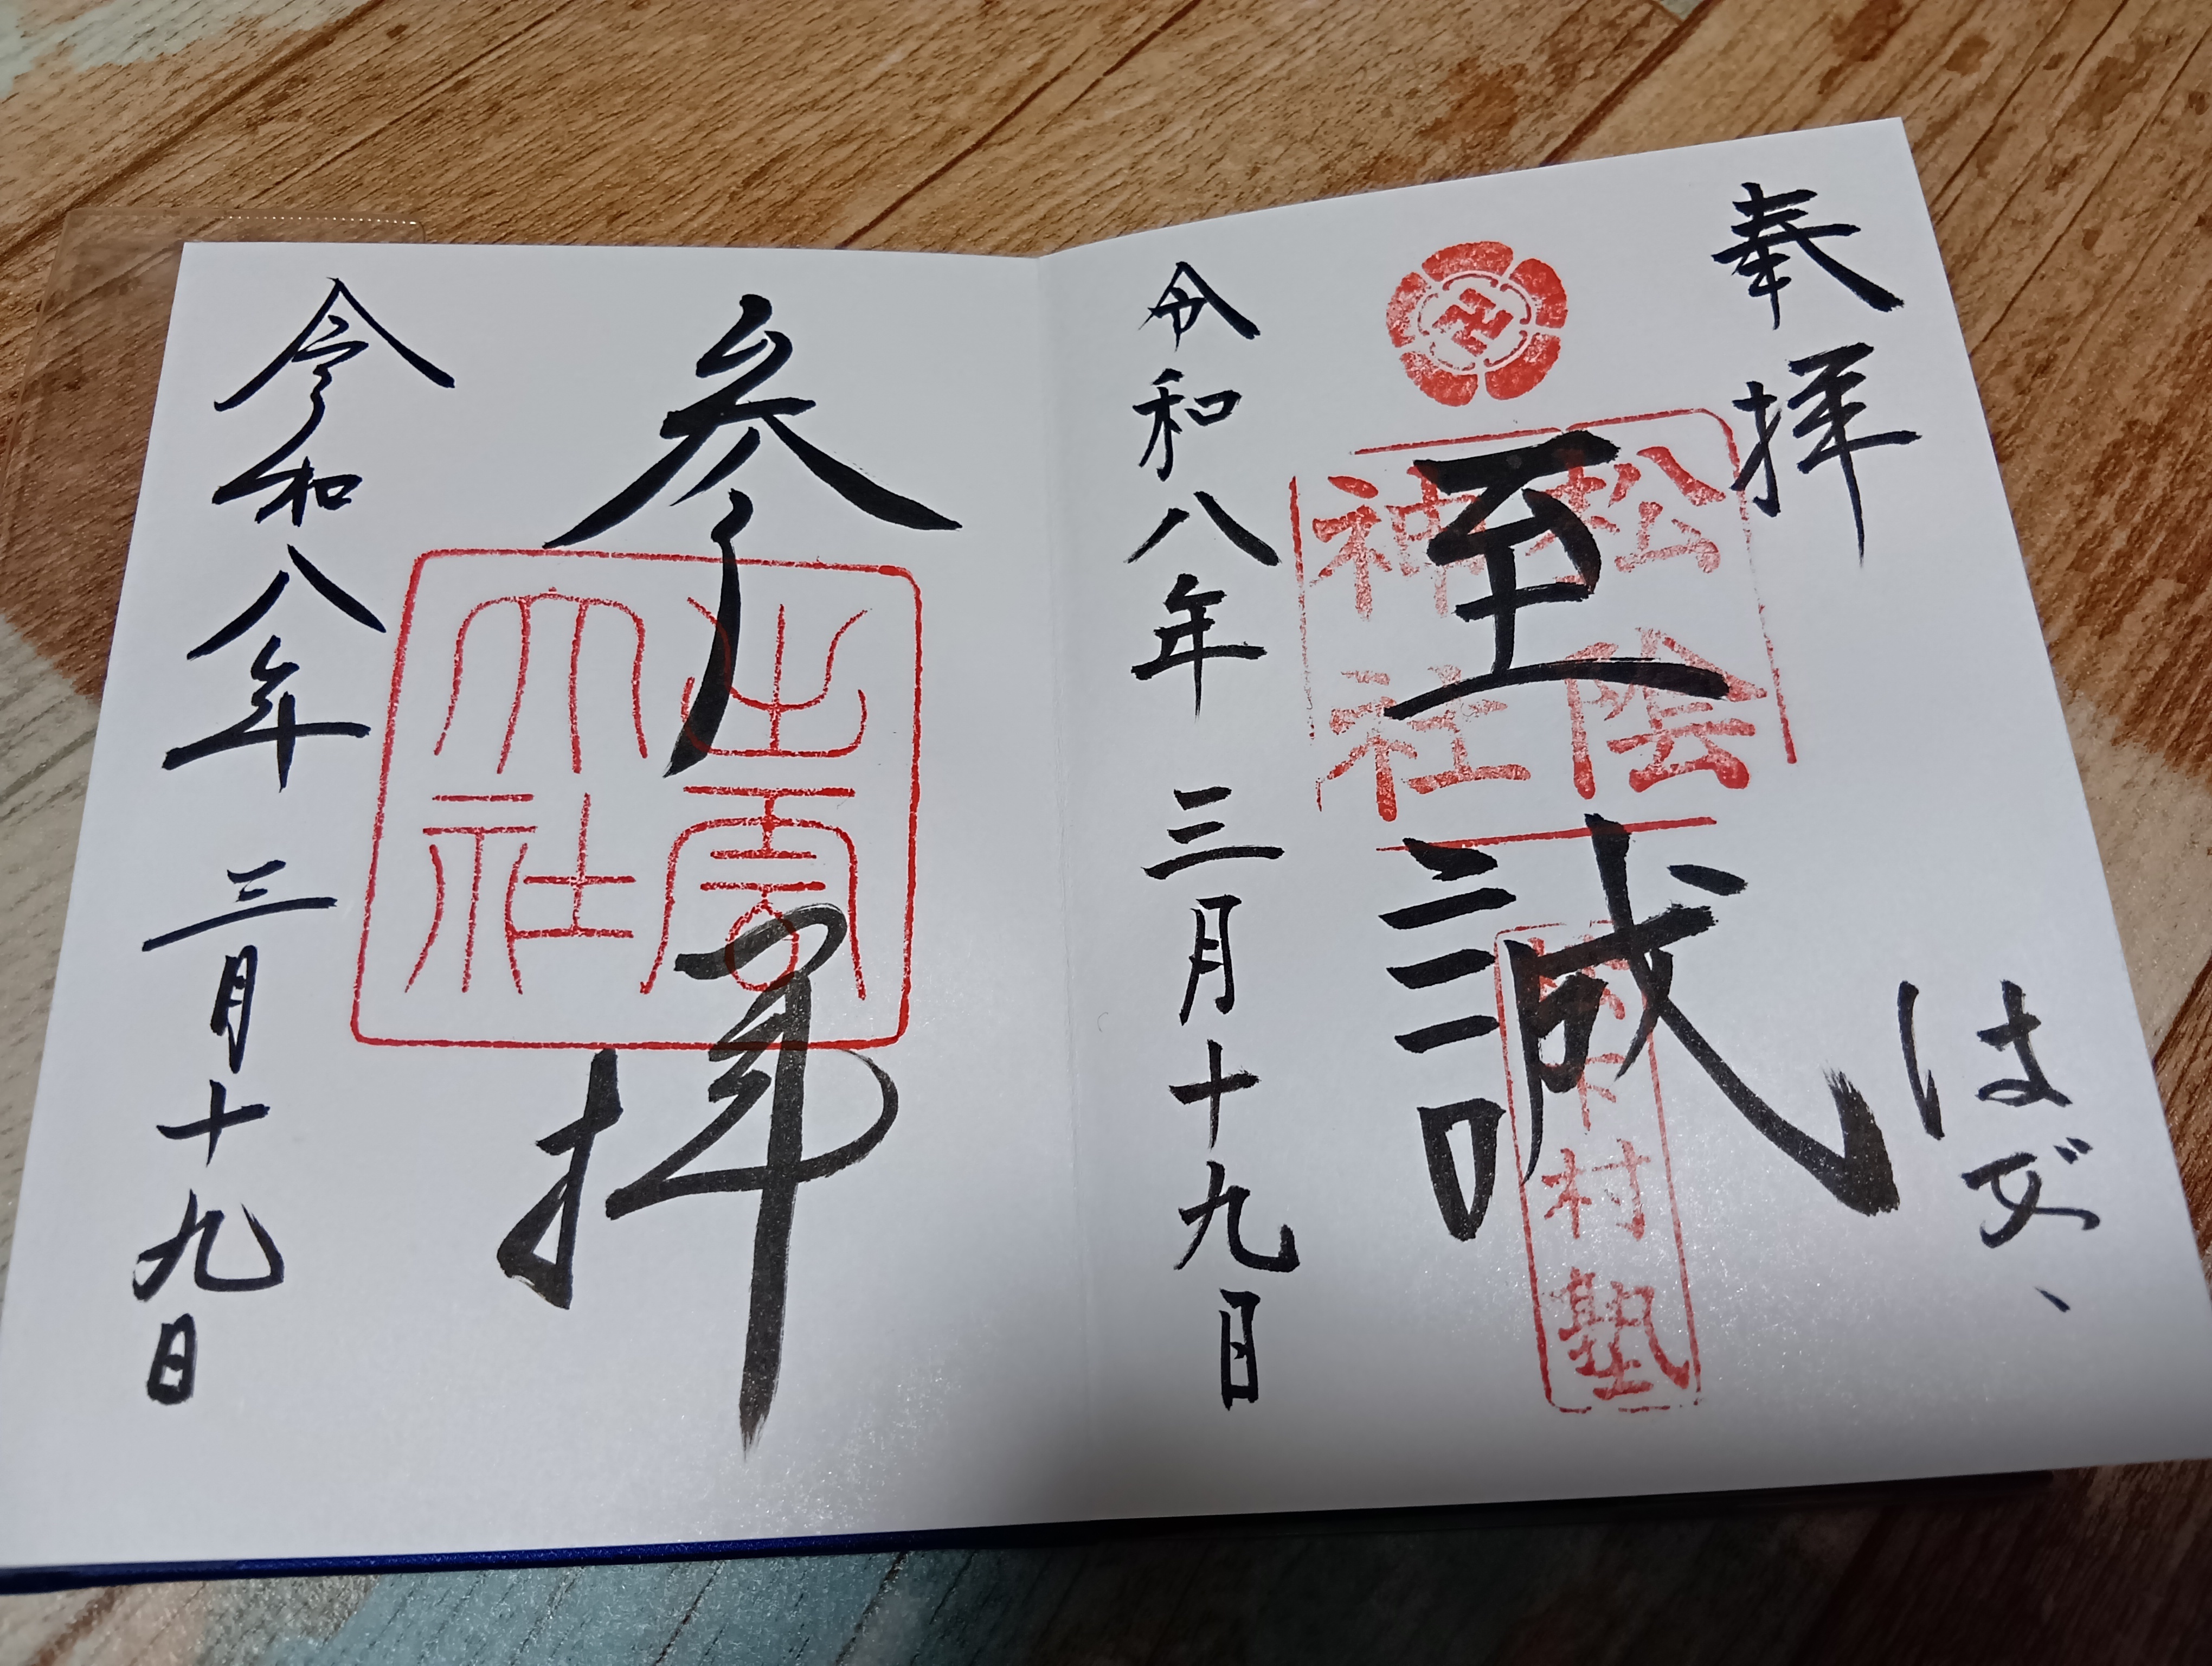 奉拝
至誠
松陰
神社
松下村塾
令和八年 三月十九日
参拝
出雲
大社
令和八年 三月十九日